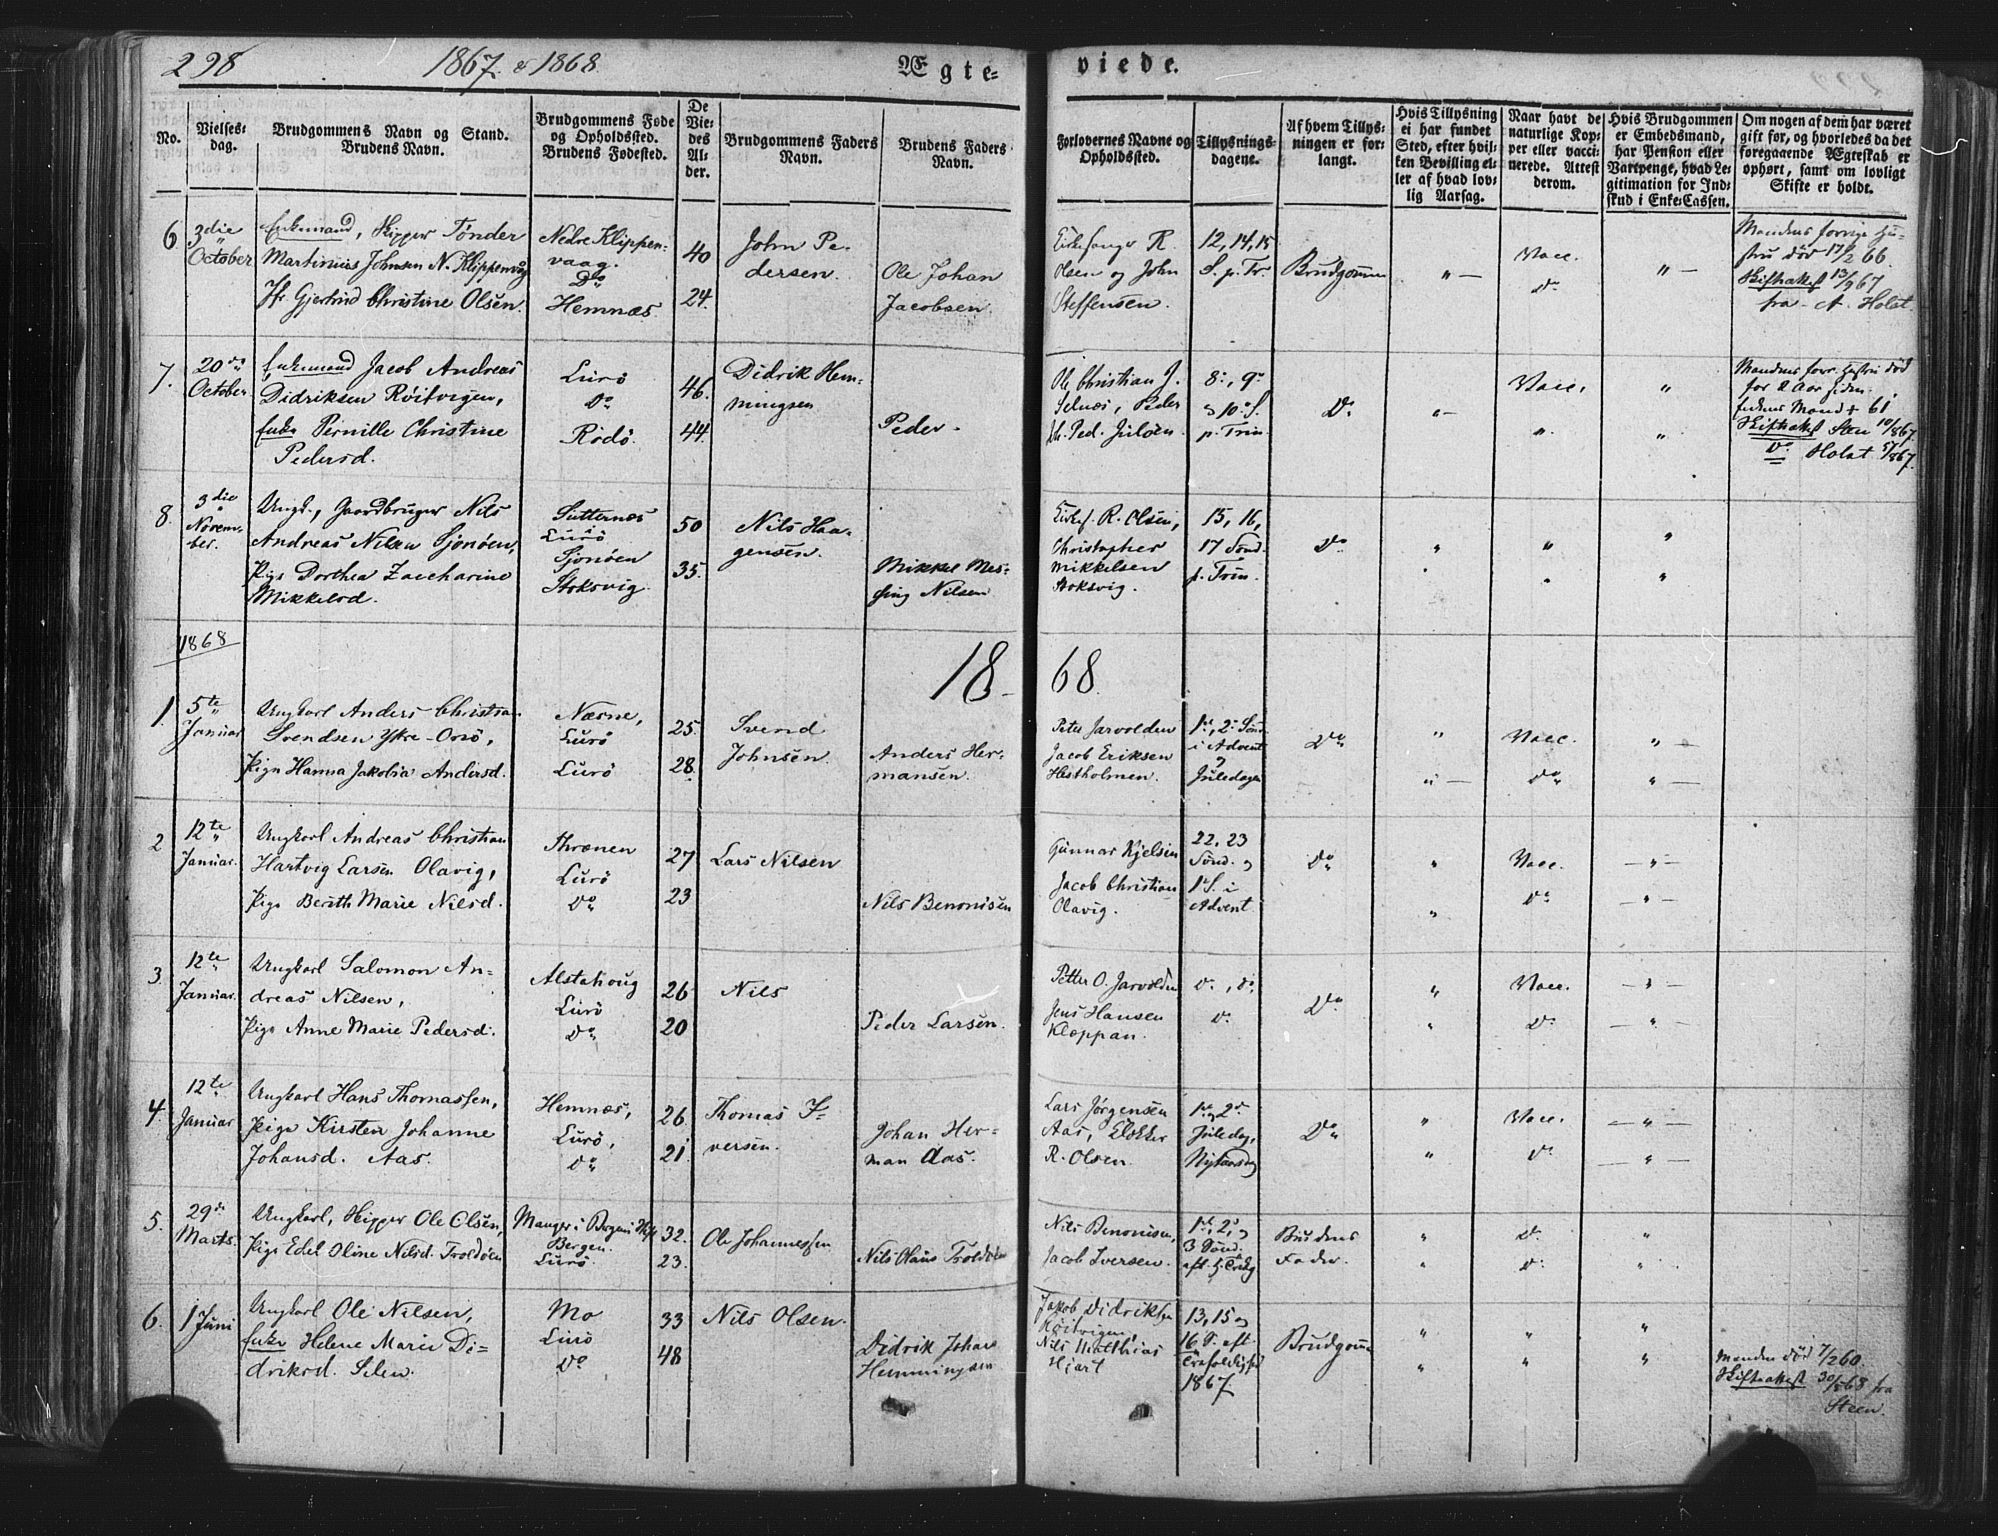 298 1867 & 1868 Ægte= viede.
No.
Vielses-
dag.
Brudgommens Navn og Stand.
Brudens Navn.
Brudgommens Føde
og Opholdssted.
Brudens Fødested.
De
Vie=
des
Al=
der.
Brudgommens Faders
Navn.
Brudens Faders
Navn.
Forlovernes Navne og
Opholdssted.
Tillysnings-
dagene.
Af hvem Tillys-
ningen er for-
langt.
Hvis Tillysning
ei har fundet
Sted, efter hvil-
ken Bevilling el-
ler af hvad lov-
lig Aarsag.
Naar havt de
naturlige Kop-
per eller vacci-
nerede. Attest
derom.
Hvis Brudgommen
er Embedsmand,
har Pension eller
Vartpenge, hvad Le-
gitimation for Ind-
skud i Enke-Cassen.
Om nogen af dem har været
gift før, og hvorledes da det
foregaaende Ægteskab er
ophørt, samt om lovligt
Skifte er holdt.
6
3die
October
Enkemand, Skipper Tønder
Martinius Johnsen N. Klippenvåg
Jfr Gjertrud Christine Olsen.
Nedre Klippen-
vaag.
Do
Hemnæs.
40
24.
John Pe-
dersen.
Ole Johan
Jacobsen.
R.
Olsen og John
Steffensen.
12, 14, 15
S. p. Tr.
Brudgomm
" —
Vacc.
Do
" —
Mandens forrige Hu-
stru død 17/2 66.
Skifteattest 13/9 67
fra A. Holst.
7.
20de
October
Enkemand Jacob Andreas
Didriksen Röitvigen,
Enke Pernille Christine
Pedersd.
Lurö
Do
Rödö.
46.
44.
Didrik Hem-
mingsen
Peder.
Ole Christian J.
Selnæs, Peder
Ped. Julsen.
8:, 9:
& 10: S.
p. Trin.
Do
" —
Vacc.
"
"
"
Mandens forr. Hustru död
for 2 Aar siden.
Enkens Mand + 61.
Skifteattest Steen 10/8 67.
Do Holst 5/8 67.
8.
3die
Novem-
ber.
Ungk., Gaardbruger Nils
Andreas Nilsen Sjonøen,
Pige Dorthea Zaccharine
Mikkelsd.
Sutternæs
Lurö
Sjonöen
Stoksvig.
50
35.
Nils Haa-
gensen.
Mikkel Mes-
sing Nilsen
R. Olsen,
Christopher
Mikkelsen
Stoksvig.
15, 16,
17 Sönd.
p. Trin.
Do
"
"
"
"
"
"
1868
18 68.
1.
5te
Januar
Ungkarl Anders Christian
Svendsen Ytre-Onö,
Pige Hanna Jakobia Andersd.
Næsne,
Lurö
Lurö
25.
28.
Svend
Johnsen.
Anders Her-
mansen.
Peter Jarvolden
Jacob Eriksen
Hestholmen.
1ste, 2: Sönd
i Advent
&
Juledagen
Do
"
" —
Vacc.
Do
" —
" —
2
12te
Januar.
Ungkarl Andreas Christian
Hartvig Larsen Olavig,
Pige Berith Marie Nilsd.
Thrænen
Lurö
Do
27
23
Lars Nilsen
Nils Benonisen
Gunnar Kjelsen
Jacob Christian
Olavig.
22, 23
Sönd. &
1: S. i
Advent
Do
"
"
Vacc.
Do
— " —
— " —
3
12te
Januar.
Ungkarl Salomon An-
dreas Nilsen,
Pige Anne Marie Pedersd.
Alstahoug
Lurö
Do
26
20
Nils
Peder Larsen.
Petter O. Jarvolden
Jens Hansen
Kloppan.
Do, Do
Do
Do
"
"
Vacc.
Do
— " —
— " —
4.
12te
Januar
Ungkarl Hans Thomassen,
Pige Kirsten Johanne
Johansd. Aas.
Hemnæs,
Lurö,
Do
26
21
Thomas I-
versen.
Johan Her-
man Aas.
Lars Jörgensen
Aas, Klokker
R. Olsen.
1ste & 2:
Juledag,
Nytaarsdag
Do
"
"
Vacc.
Do
— " —
— " —
5.
29de
Marts.
Ungkarl, Skipper Ole Olsen,
Pige Edel Oline Nilsd. Troldöen
Manger i Bergens Stift
Bergen.
Lurö.
32.
23.
Ole Johannessen
Nils Olaus Troldöen
Nils Benonisen,
Jacob Iversen.
1ste, 2: &
3 Sönd.
aft. H. 3 Kong
Brudens
Fader.
"
"
Do
Do
"
"
6.
1 Juni
Ungkarl Ole Nilsen,
Enke Helene Marie Di-
driksd. Selen.
Mo
Lurö
Do
33
48
Nils Olsen.
Didrik Johan
Hemmingsen
Jakob Didriksen
Röitvigen,
Nils Matthias
Hjart
13, 15 &
16 S. eft.
Trefoldighed
1867.
Brudgomm
"
"
"
"
"
"
Manden död 7/2 60.
Skifteattest 30/5 68 fra
Steen.